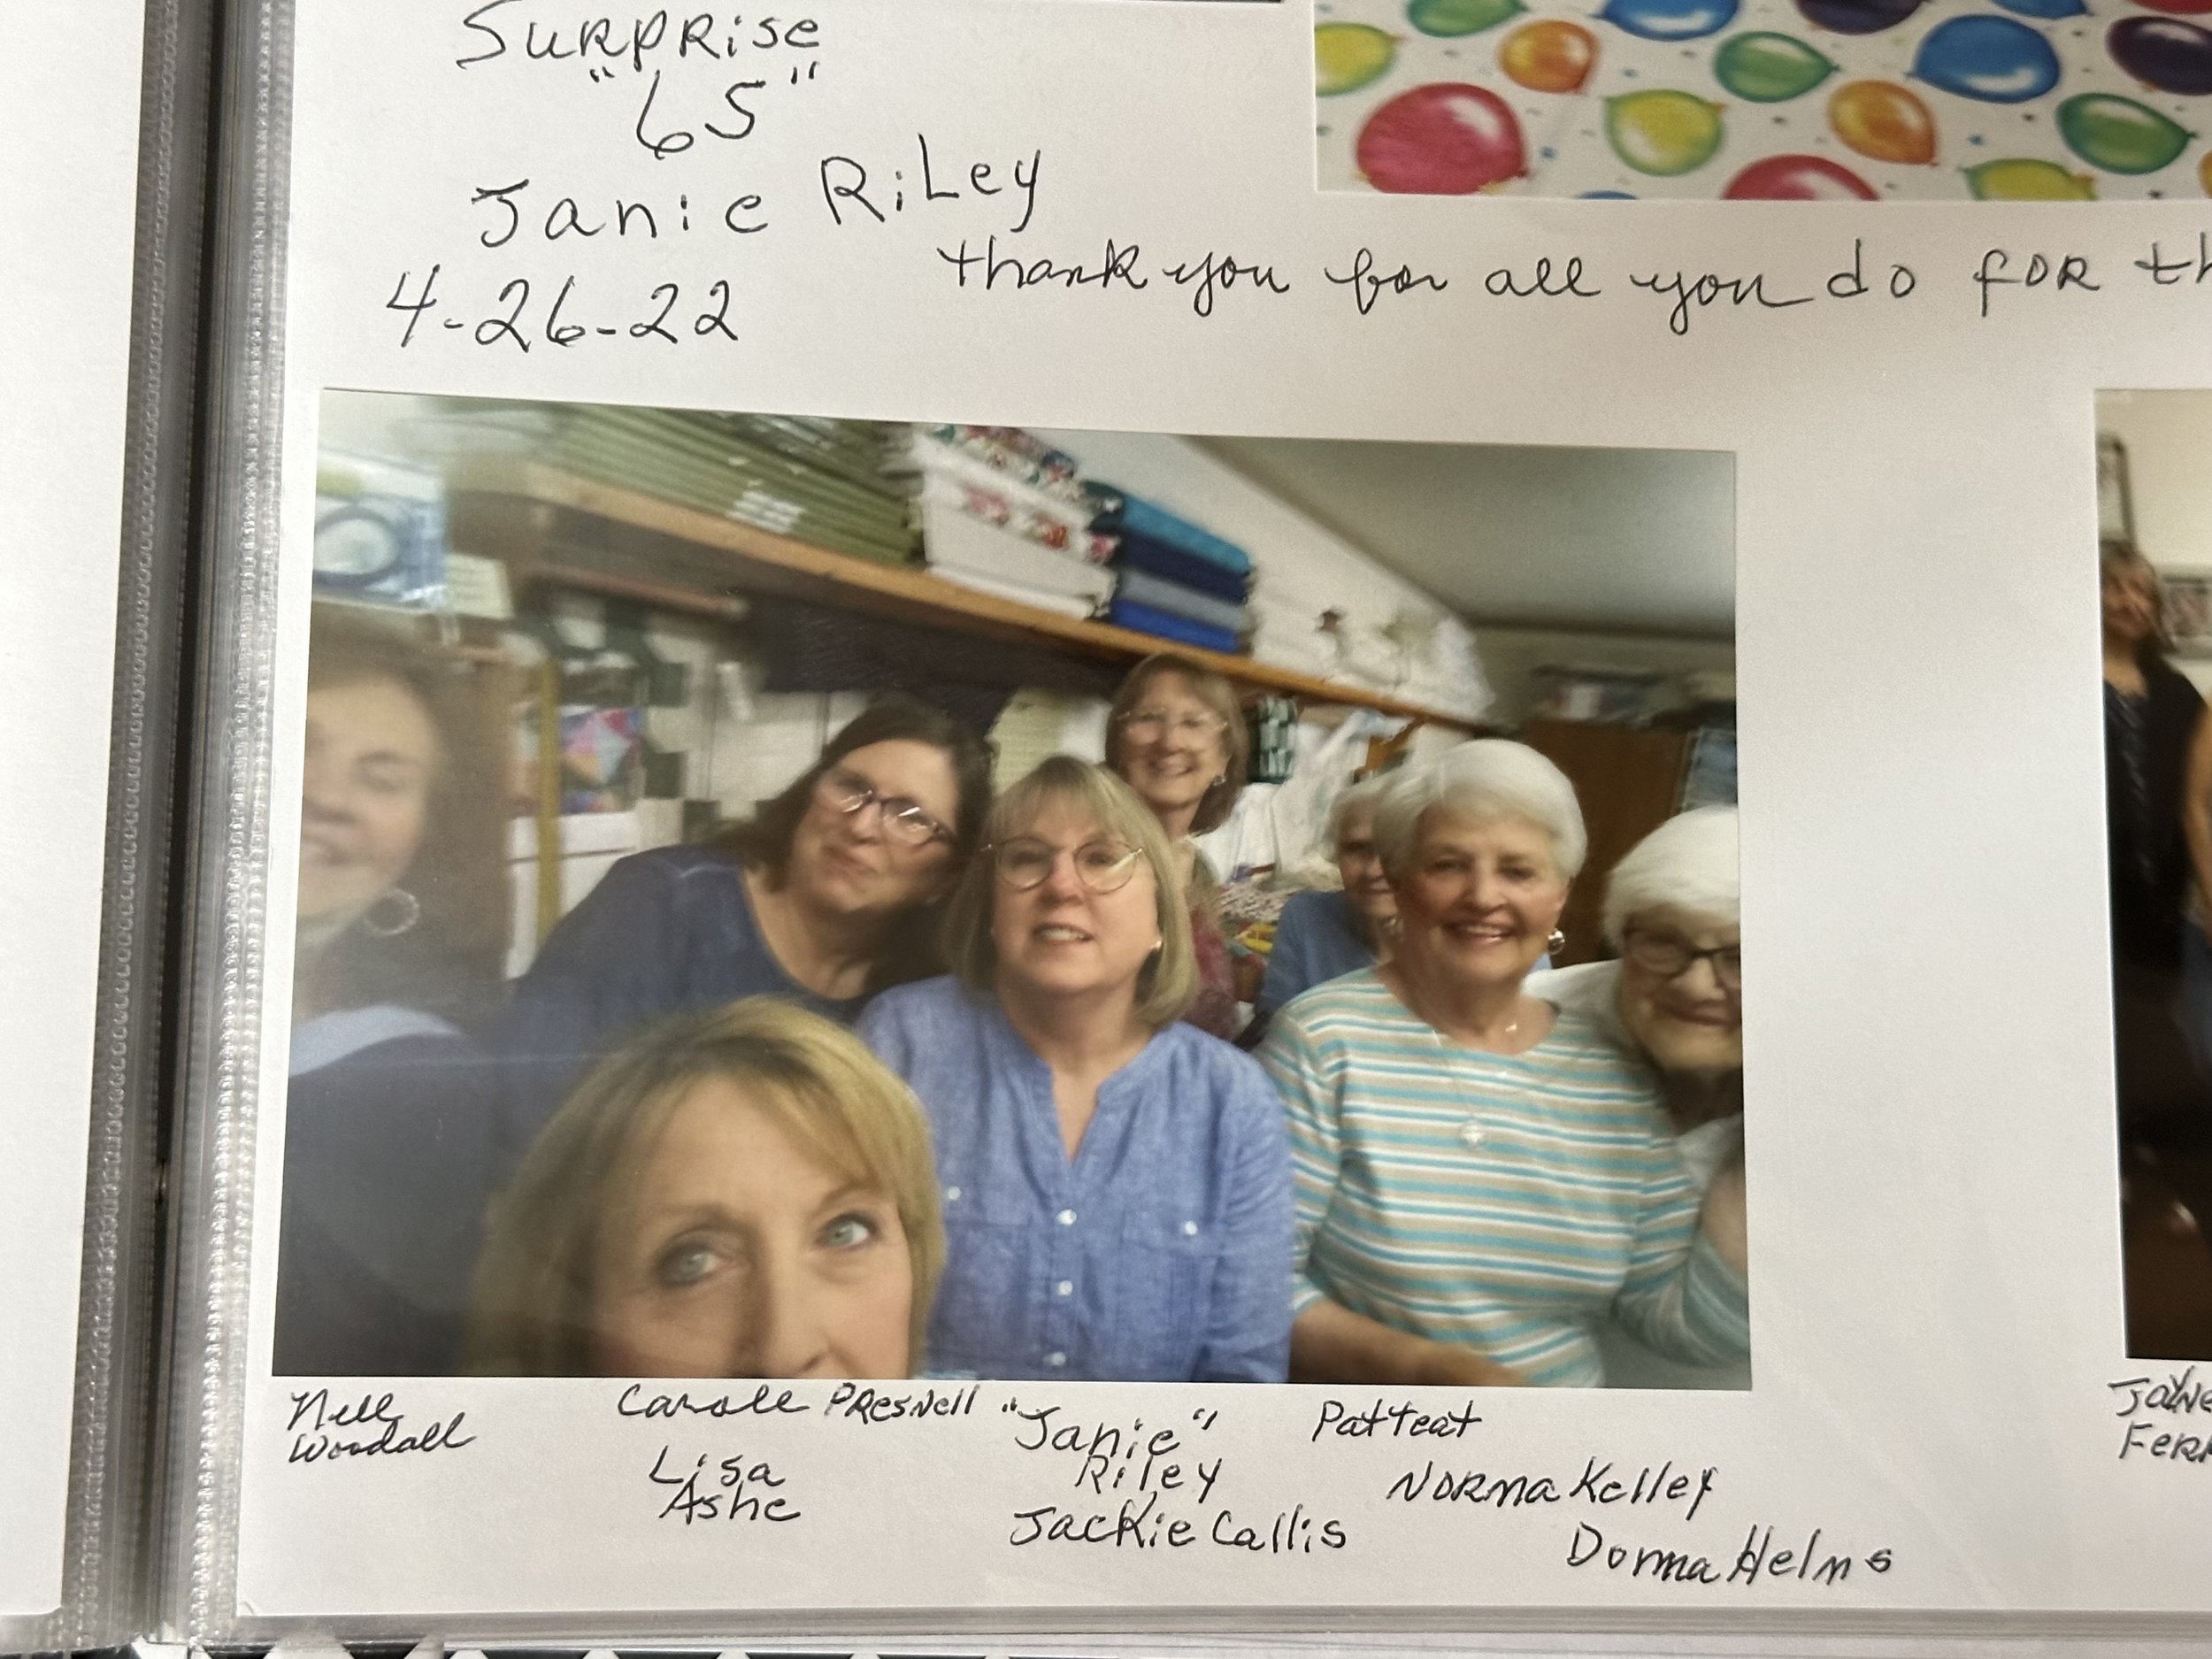 SURPRise
"65"
Janie RiLey
4-26-22
thank you for all you do foR th
Nell
Woodall
Carole PResNell
Lisa
Ashe
"Janie"
Riley
Jackie Callis
Pat Teat
NORma Kelley
Donna Helms
JayNe
FeRR